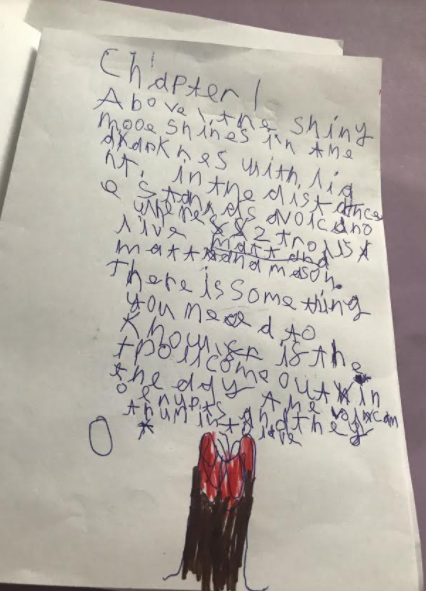 Chapter 1
Above, the shiny
mooe shines in the
darknes with lig
ht. in the distance
e stands avolcano
where 2 trolls
live
matt and mason.
There is some thing
you need to
know, if the
troll come out in
the day the volcan
o erupts and they
turn into lave